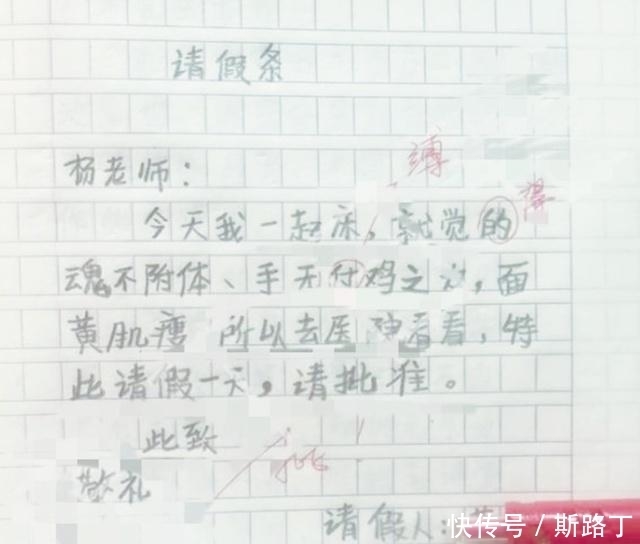 请假条
缚
杨老师：
得
今天我一起床，就觉的
魂不附体、手无付鸡之力，面
黄肌瘦 所以去医院看看，特
此请假一天，请批准。
此致
敬礼
请假人：
快传号／斯路丁